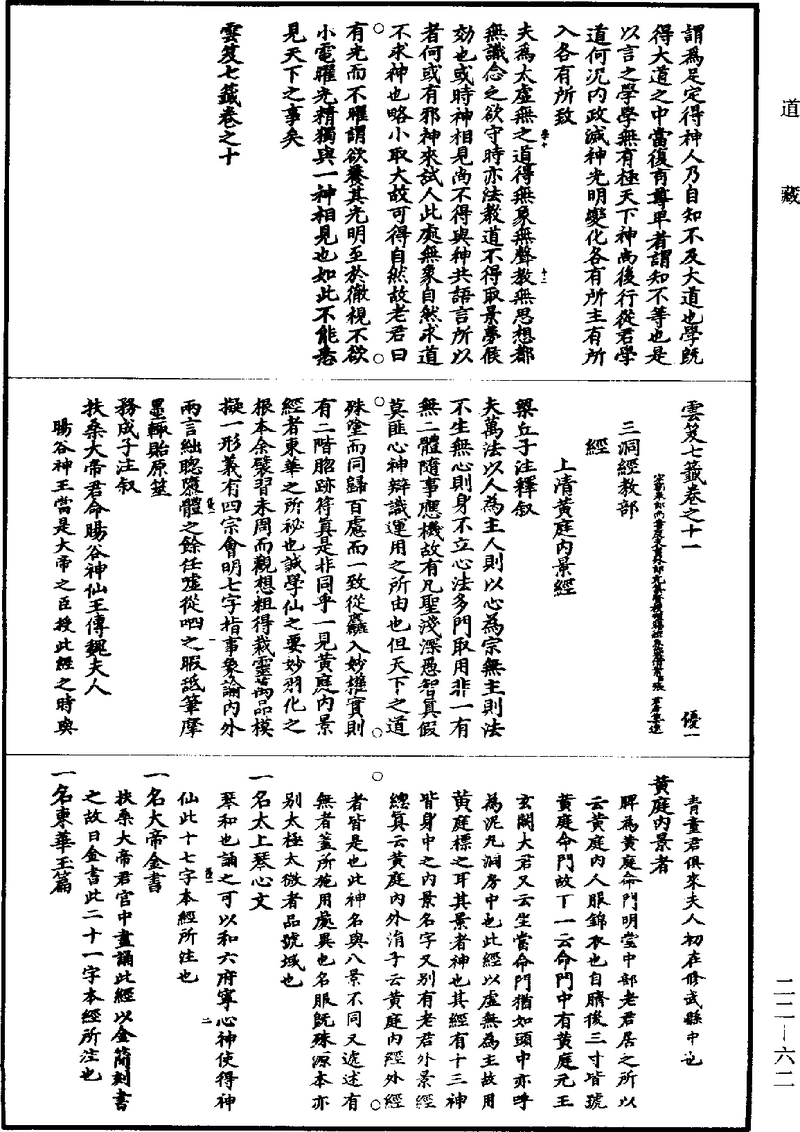 道藏
謂為足定得神人乃自知不及大道也學既
得大道之中當復有尊卑者謂知不等也是
以言之學學無有極天下神尚復行從君學
道何況內政滅神光明變化各有所主有所
入各有所致
夫為太虛無之道得無象無聲教無思想都
無識念之欲守時亦法教道不得取景夢候
効也或時神相見尚不得與神共語言所以
者何或有邪神來試人此處無象自然求道
不求神也略小取大故可得自然故老君曰
有光而不曜謂欲養其光明至於徹視不欲
小電曜光精獨與一神相見也如此不能悉
見天下之事矣
雲笈七籤卷之十
雲笈七籤卷之十一
優一
三洞經教部
經
上清黃庭內景經
梁丘子注釋叙
夫萬法以人為主人則以心為宗無主則法
不生無心則身不立心法多門取用非一有
無二體隨事應機故有凡聖淺深愚智真假
莫匪心神辯識運用之所由也但天下之道
殊塗而同歸百慮而一致從麤入妙權實則
有二階韶跡符真是非同乎一見黃庭內景
經者東華之所祕也誠學仙之要妙羽化之
根本余襲習未周而觀想粗得裁靈萬品模
擬一形義有四宗會明七字指事象諭內外
兩言絀聰隳體之餘任噓從呬之暇舐筆摩
墨輒貽原筮
務成子注叙
扶桑大帝君命暘谷神仙王傳魏夫人
暘谷神王當是大帝之臣授此經之時與
青童君俱來夫人初在修武縣中也
黃庭內景者
脾為黃庭命門明堂中部老君居之所以
云黃庭內人服錦衣也自臍後三寸皆號
黃庭命門故丁一云命門中有黃庭元王
玄闕大君又云坐當命門猶如頭中亦呼
為泥丸洞房中也此經以虛無為主故用
黃庭標之耳其景者神也其經有十三神
皆身中之內景名字又別有老君外景經
總真云黃庭內外涓子云黃庭內經外經
者皆是也此神名與八景不同又處述有
無者蓋所施用處異也名服既殊源本亦
別太極太微者品號域也
一名太上琴心文
琴和也誦之可以和六府寧心神使得神
仙此十七字本經所注也
一名大帝金書
扶桑大帝君宮中盡誦此經以金簡刻書
之故曰金書此二十一字本經所注也
一名東華玉篇
二二—六二